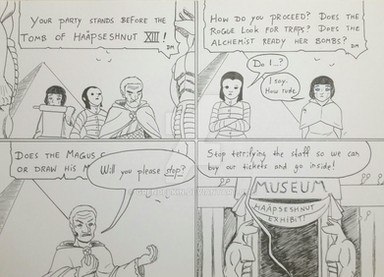 Your party stands before the
Tomb of Haâpseshnut XIII!
DM
How do you proceed? Does the
Rogue look for traps? Does the
Alchemist ready her bombs?
DM
Do I...?
I say.
How rude.
Does the Magus
or draw his
Will you please stop?
Stop terrifying the staff so we can
buy our tickets and go inside!
MUSEUM
HAÂPSESHNUT
EXHIBIT!